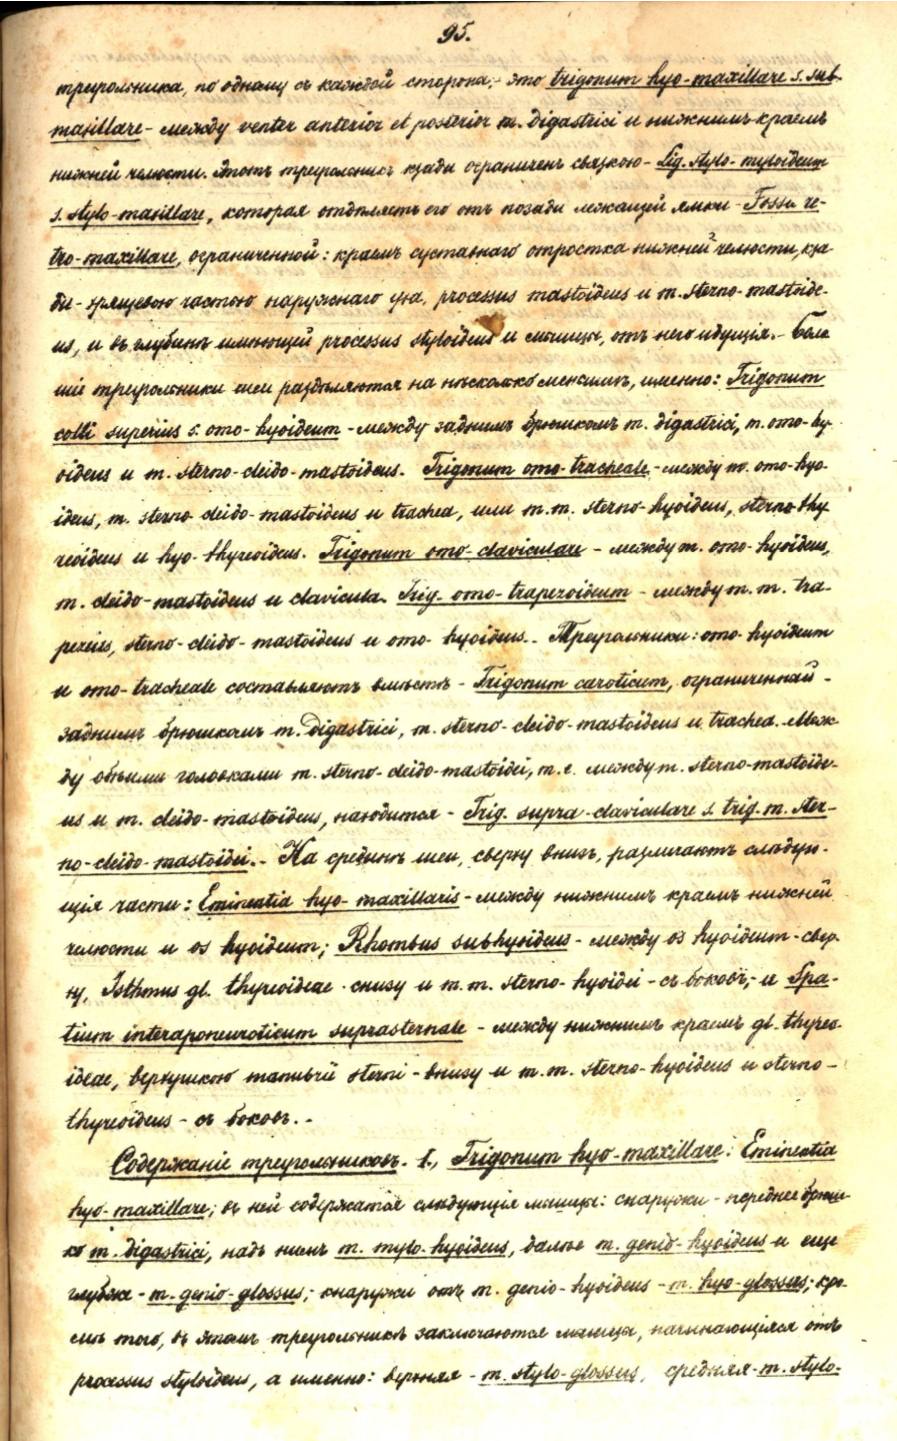 95.
треугольника, по одному съ каждой стороны,- это trigonum hyo-maxillare s. sub-
maxillare - между venter anterior et posterior m. digastrici и нижнимъ краемъ
нижней челюсти. Этотъ треугольникъ кзади ограниченъ связкою - Lig. stylo-myloideum
s. stylo-maxillare, которая отдѣляетъ его отъ позади лежащей ямки - Fossa re-
tro-maxillare, ограниченной: краемъ суставнаго отростка нижней челюсти, кза-
ди - хрящевою частью наружнаго уха, processus mastoideus и m. sterno-mastoide-
us, и въ глубинѣ имѣющей processus styloideus и мышцы, отъ него идущія. - Боль
шіе треугольники шеи раздѣляются на нѣсколько меньшихъ, именно: Trigonum
colli superius s. omo-hyoideum - между заднимъ брюшкомъ m. digastrici, m. omo-hy-
oideus и m. sterno-cleido-mastoideus. Trigonum omo-tracheale - между m. omo-hyo-
ideus, m. sterno-cleido-mastoideus и trachea, или m.m. sterno-hyoideus, sterno-thy
reoideus и hyo-thyreoideus. Trigonum omo-claviculare - между m. omo-hyoideus,
m. cleido-mastoideus и clavicula. Trig. omo-trapezoideum - между m.m. tra-
pezius, sterno-cleido-mastoideus и omo-hyoideus.- Треугольники: omo-hyoideum
и omo-tracheale составляютъ вмѣстѣ - Trigonum caroticum, ограниченный -
заднимъ брюшкомъ m. digastrici, m. sterno-cleido-mastoideus и trachea. Меж-
ду обѣими головками m. sterno-cleido-mastoidei, т. е. между m. sterno-mastoide-
us и m. cleido-mastoideus, находится - Trig. supra-claviculare s. trig. m. ster-
no-cleido-mastoidei.- На срединѣ шеи, сверху внизъ, различаютъ слѣдую-
щія части: Eminentia hyo-maxillaris - между нижнимъ краемъ нижней
челюсти и os hyoideum; Rhombus subhyoideus - между os hyoideum - свер-
ху, Isthmus gl. thyreoideae - снизу и m.m. sterno-hyoidei - съ боковъ,- и Spa-
tium interaponeuroticum suprasternale - между нижнимъ краемъ gl. thyreo-
ideae, верхушкою sterni - внизу и m.m. sterno-hyoideus и sterno-
thyreoideus - съ боковъ.-
Содержаніе треугольниковъ. 1., Trigonum hyo-maxillare: Eminentia
hyo-maxillare; въ ней содержатся слѣдующія мышцы: снаружи - переднее брюш-
ко m. digastrici, надъ нимъ m. mylo-hyoideus, далѣе m. genio-hyoideus и еще
глубже - m. genio-glossus; кнаружи отъ m. genio-hyoideus - m. hyo-glossus; кро-
мѣ того, въ этомъ треугольникѣ заключаются мышцы, начинающіяся отъ
processus styloideus, а именно: верхняя - m. stylo-glossus, средняя - m. stylo-